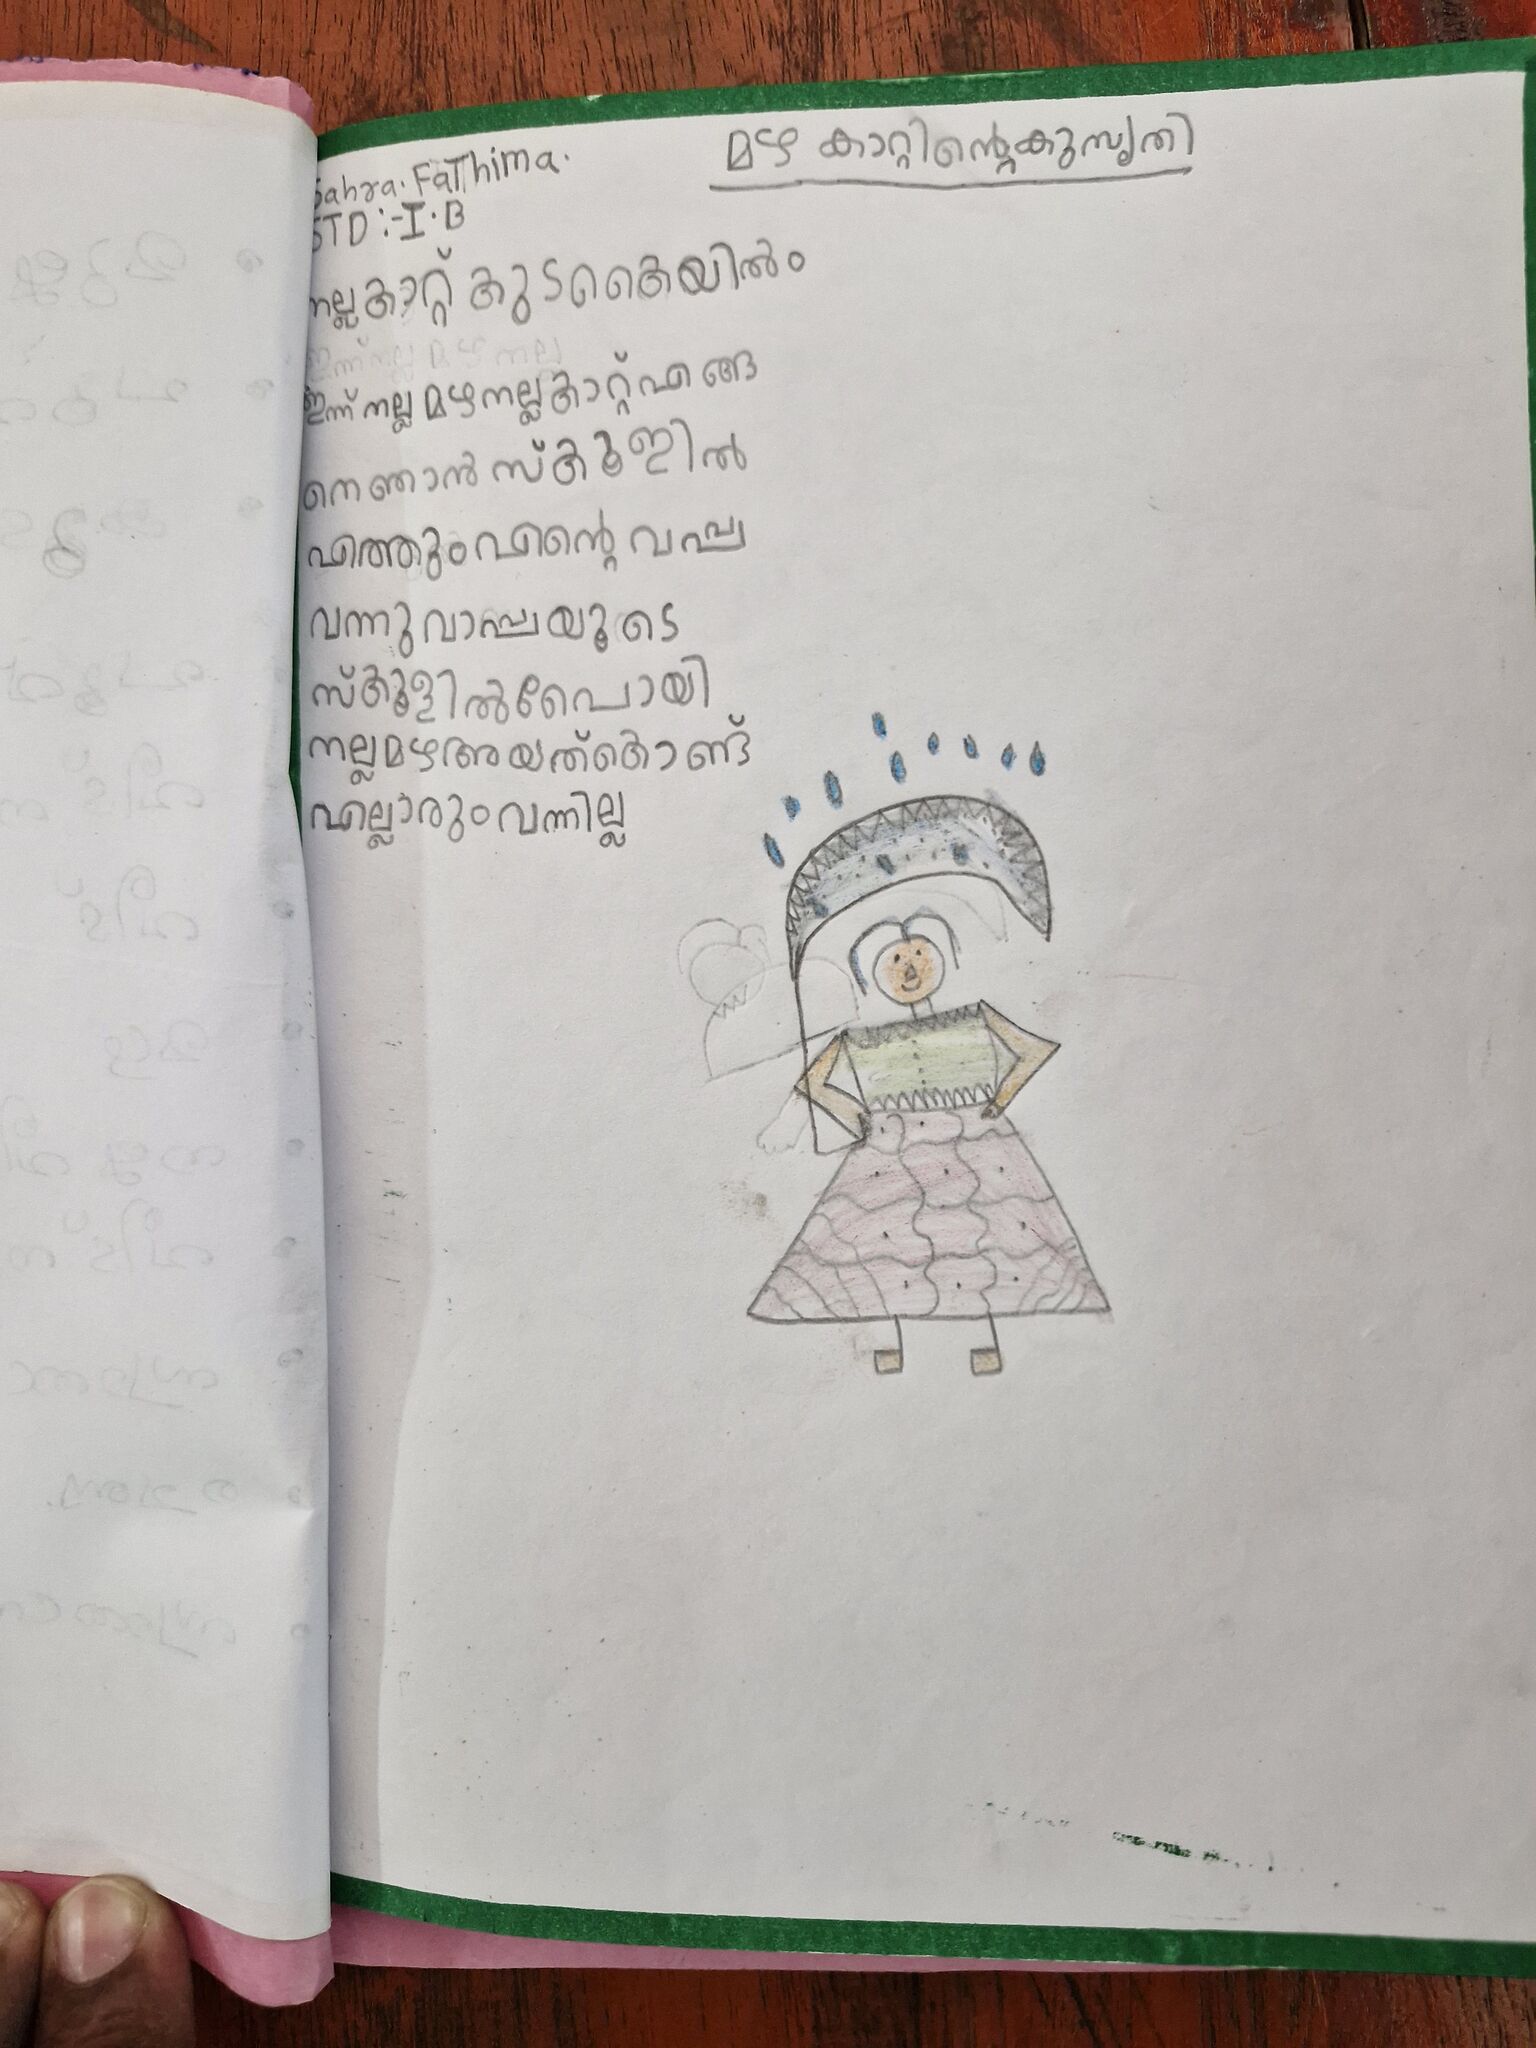 മഴ കാറ്റിൻ്റെകുസൃതി
Sahra. FaThima.
STD :-I.B
നല്ലകാറ്റ് കുടകൈയിൽം
ഇന്ന് നല്ല മഴ നല്ല
ഇന്ന് നല്ല മഴനല്ലകാറ്റ്എങ്ങ
നെഞാൻ സ്കൂളിൽ
എത്തുംഎൻ്റെ വപ്പ
വന്നുവാപ്പയൂടെ
സ്കൂളിൽപോയി
നല്ലമഴഅയത്കൊണ്ട്
എല്ലാരുംവന്നില്ല